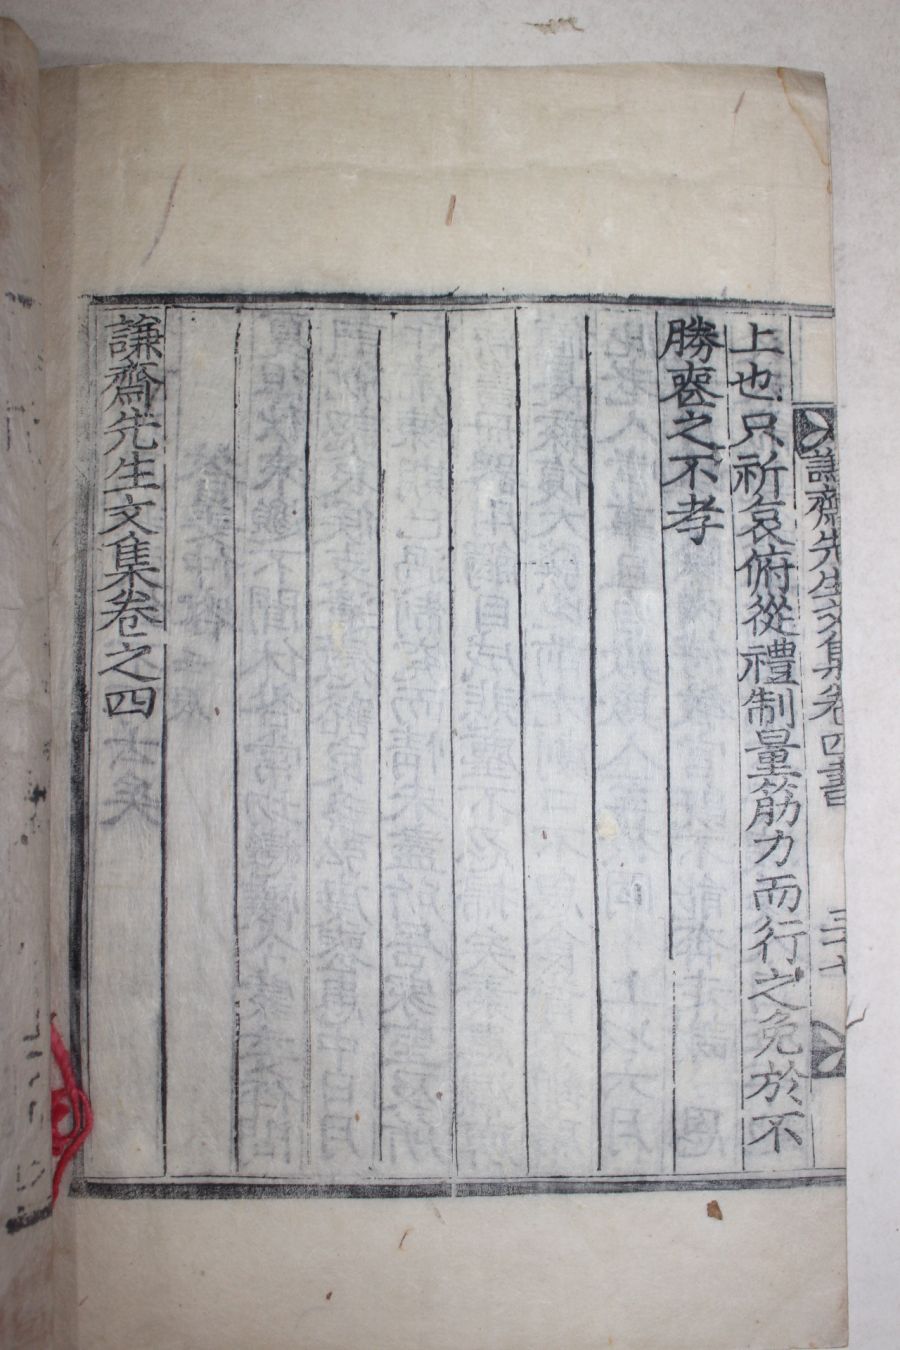 上也只祈哀俯從禮制量筋力而行之免於不
勝喪之不孝
謙齋先生文集卷之四
謙齋先生文集卷四書